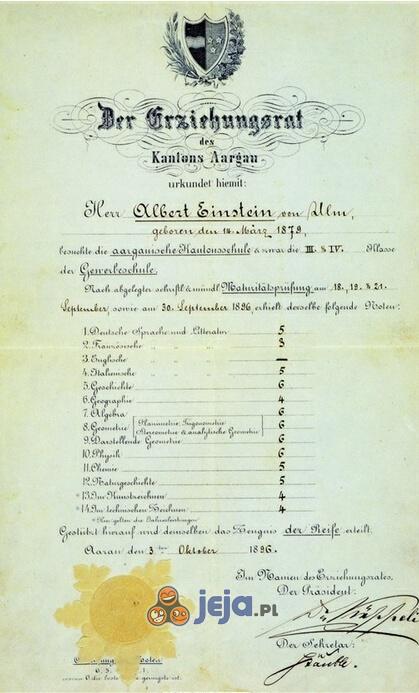 Der Erziehungsrat
des
Kantons Aargau
urkundet hiemit:
Herr Albert Einstein von Ulm,
geboren den 14. März 1879,
besuchte die aargauische Kantonsschule & zwar die III. & IV. Klasse
der Gewerbeschule.
Nach abgelegter schriftl. & mündl. Maturitätsprüfung am 18., 19. & 21.
September, sowie am 30. September 1896, erhielt derselbe folgende Noten:
1. Deutsche Sprache und Litteratur 5
2. Französische 3
3. Englische —
4. Italienische 5
5. Geschichte 6
6. Geographie 4
7. Algebra 6
8. Geometrie (Planimetrie, Trigonometrie Stereometrie & analytische Geometrie) 6
9. Darstellende Geometrie 6
10. Physik 6
11. Chemie 5
12. Naturgeschichte 5
* 13. Im Kunstzeichnen 4
* 14. Im technischen Zeichnen 4
* Hier gelten die Jahresleistungen
Gestützt hierauf wird demselben das Zeugnis der Reife erteilt.
Aarau den 3ten Oktober 1896.
Im Namen des Erziehungsrates,
Der Präsident:
Der Sekretär:
jeja.pl